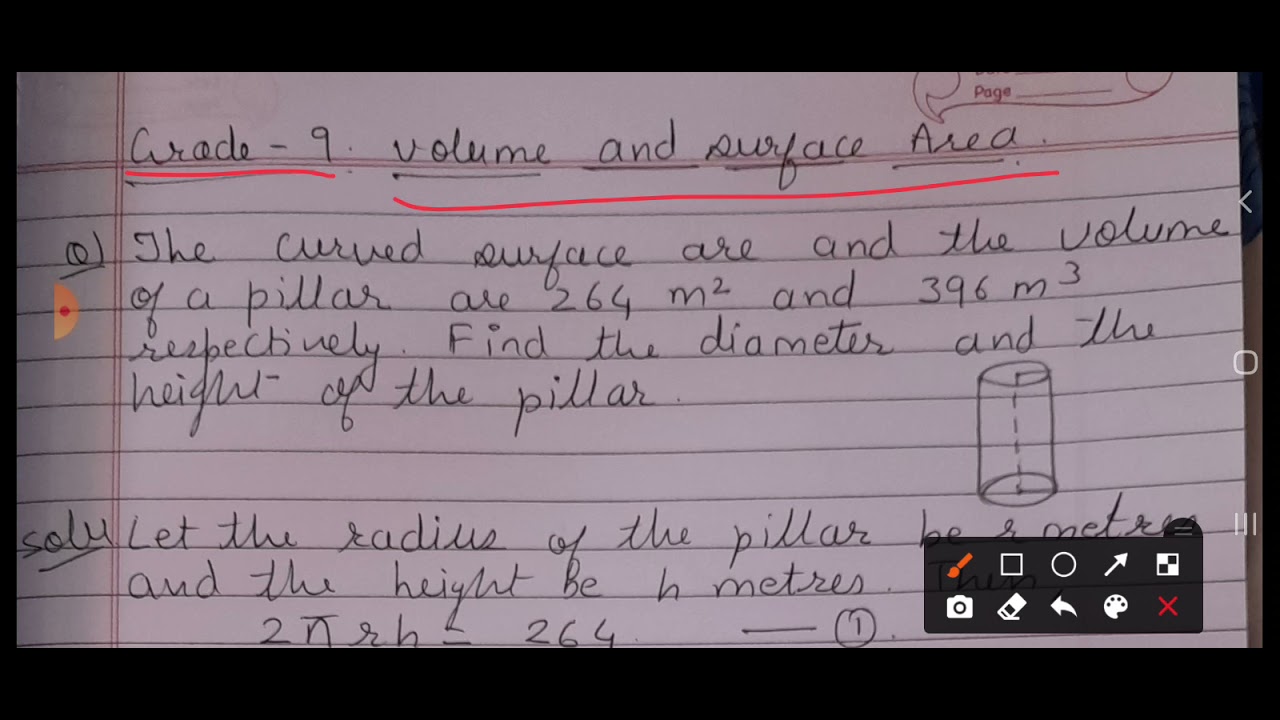 Page
Grade - 9. volume and surface Area.
Q) The curved surface are and the volume
of a pillar are 264 m² and 396 m³
respectively. Find the diameter and the
height of the pillar.
Solu Let the radius of the pillar be r metres
and the height Be h metres. Then
2πrh = 264. — ①.